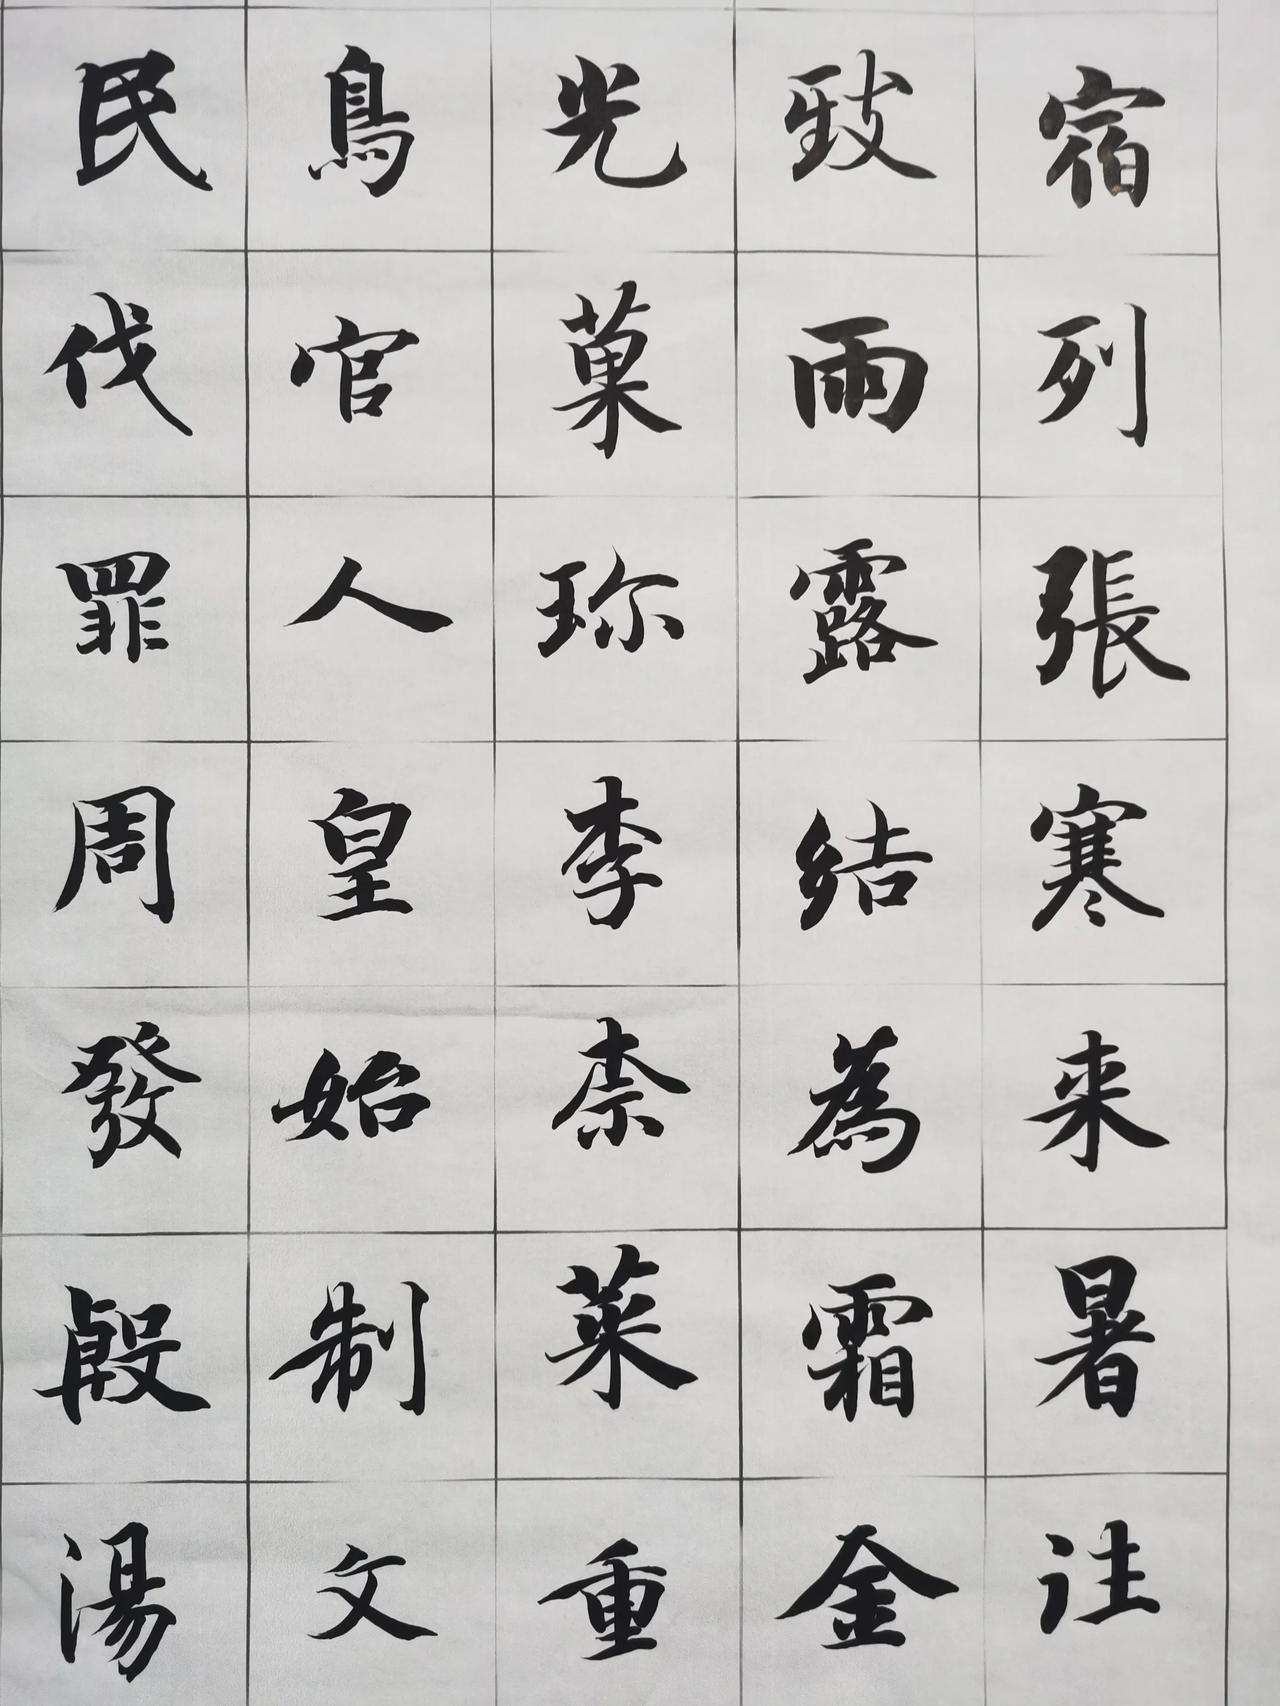 宿列張寒来暑往
致雨露結為霜金
光菓珎李柰菜重
鳥官人皇始制文
民伐罪周發殷湯